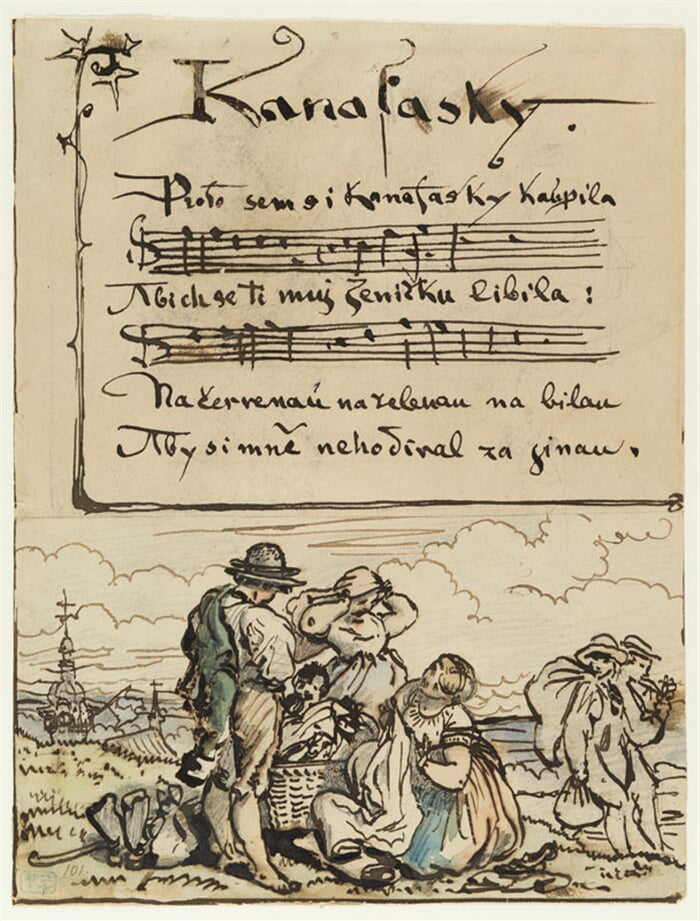 Kanafasky.
Proto sem si Kanafasky kaupila
Abich se ti muj Ženičku libila :
Na červenaú na zelenau na bilau
Aby si mně nehodíval za ginau.
101.